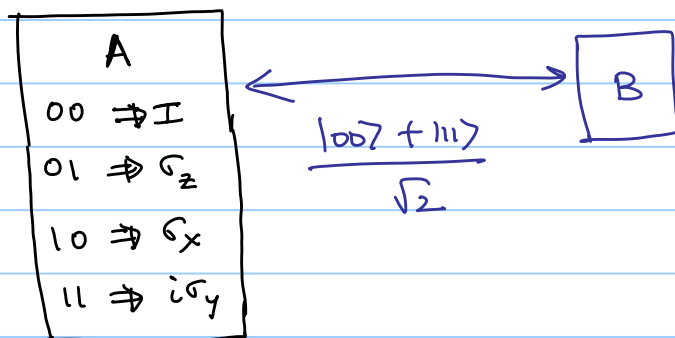 A
00 ⇒ I
01 ⇒ σz
10 ⇒ σx
11 ⇒ iσy
|00⟩ + |11⟩
√2
B